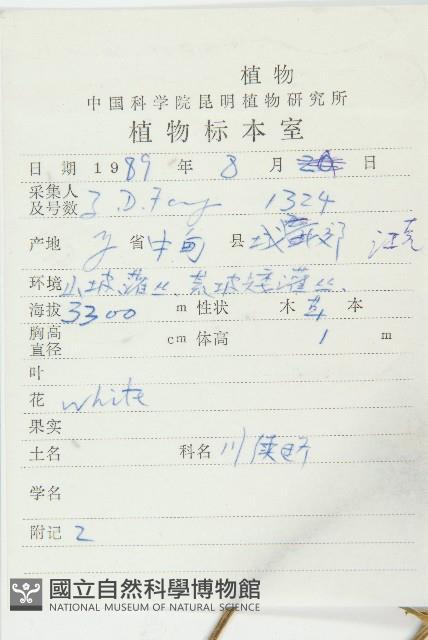 植物
中国科学院昆明植物研究所
植物标本室
日 期 1989 年 8 月 日
采集人
及号数 D. Feng 1324
产地 省 中甸 县 城 郊
环境 山坡灌丛
海拔 3300 m 性状 木 草 本
胸高
直径 cm 体高 1 m
叶
花 white
果实
土名 科名 川续断
学名
附记 2
國立自然科學博物館
NATIONAL MUSEUM OF NATURAL SCIENCE